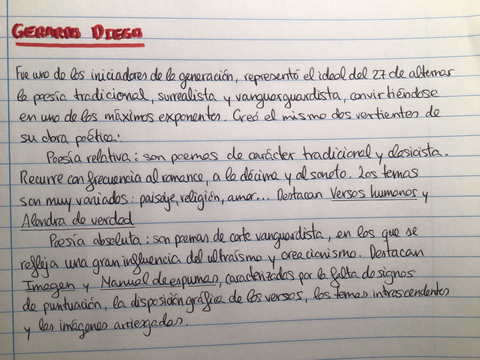 GERARDO DIEGO
Fue uno de los iniciadores de la generación, representó el ideal del 27 de alternar
la poesía tradicional, surrealista y vanguarguardista, convirtiéndose
en uno de los máximos exponentes. Creó el mismo dos vertientes de
su obra poética:
Poesía relativa: son poemas de carácter tradicional y clasicista.
Recurre con frecuencia al romance, a la décima y al soneto. Los temas
son muy variados: paisaje, religión, amor... Destacan Versos humanos y
Alondra de verdad
Poesía absoluta: son poemas de corte vanguardista, en los que se
refleja una gran influencia del ultraísmo y creacionismo. Destacan
Imagen y Manual de espumas, caracterizados por la falta de signos
de puntuación, la disposición gráfica de los versos, los temas intrascendentes
y las imágenes arriesgadas.